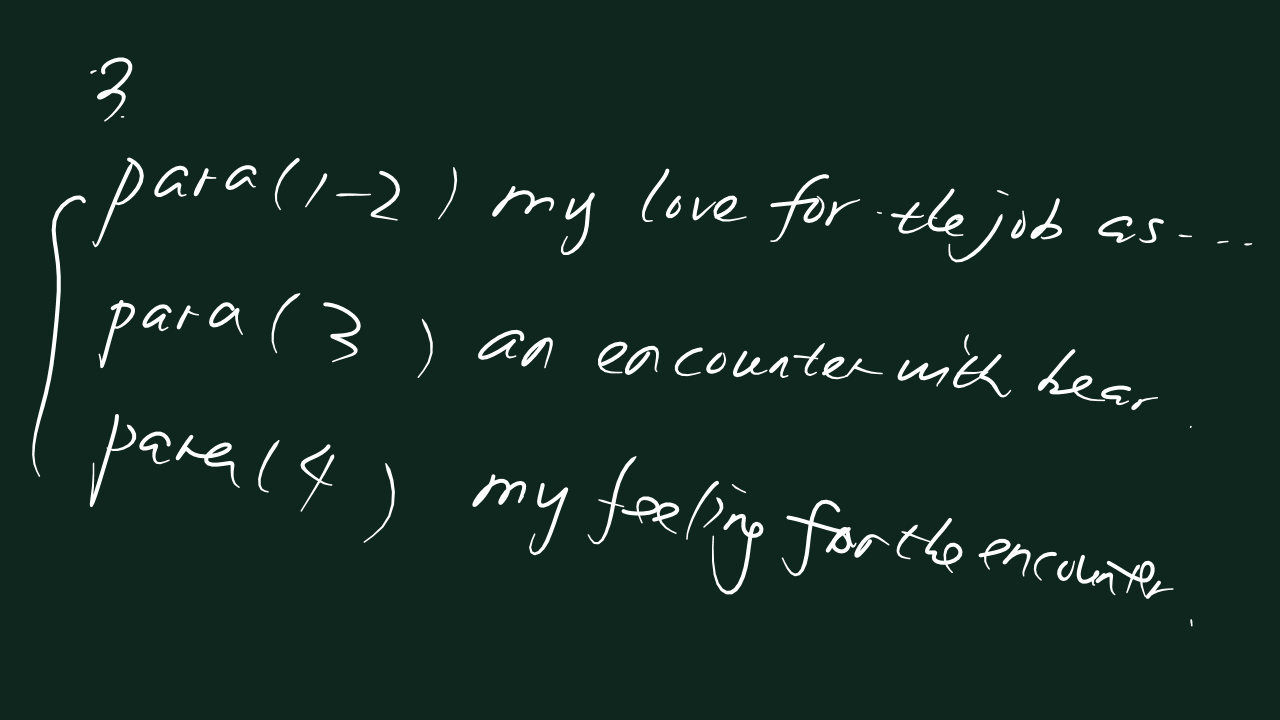 3
para(1-2) my love for the job as-...
para(3) an encounter with bear
para(4) my feeling for the encounter.